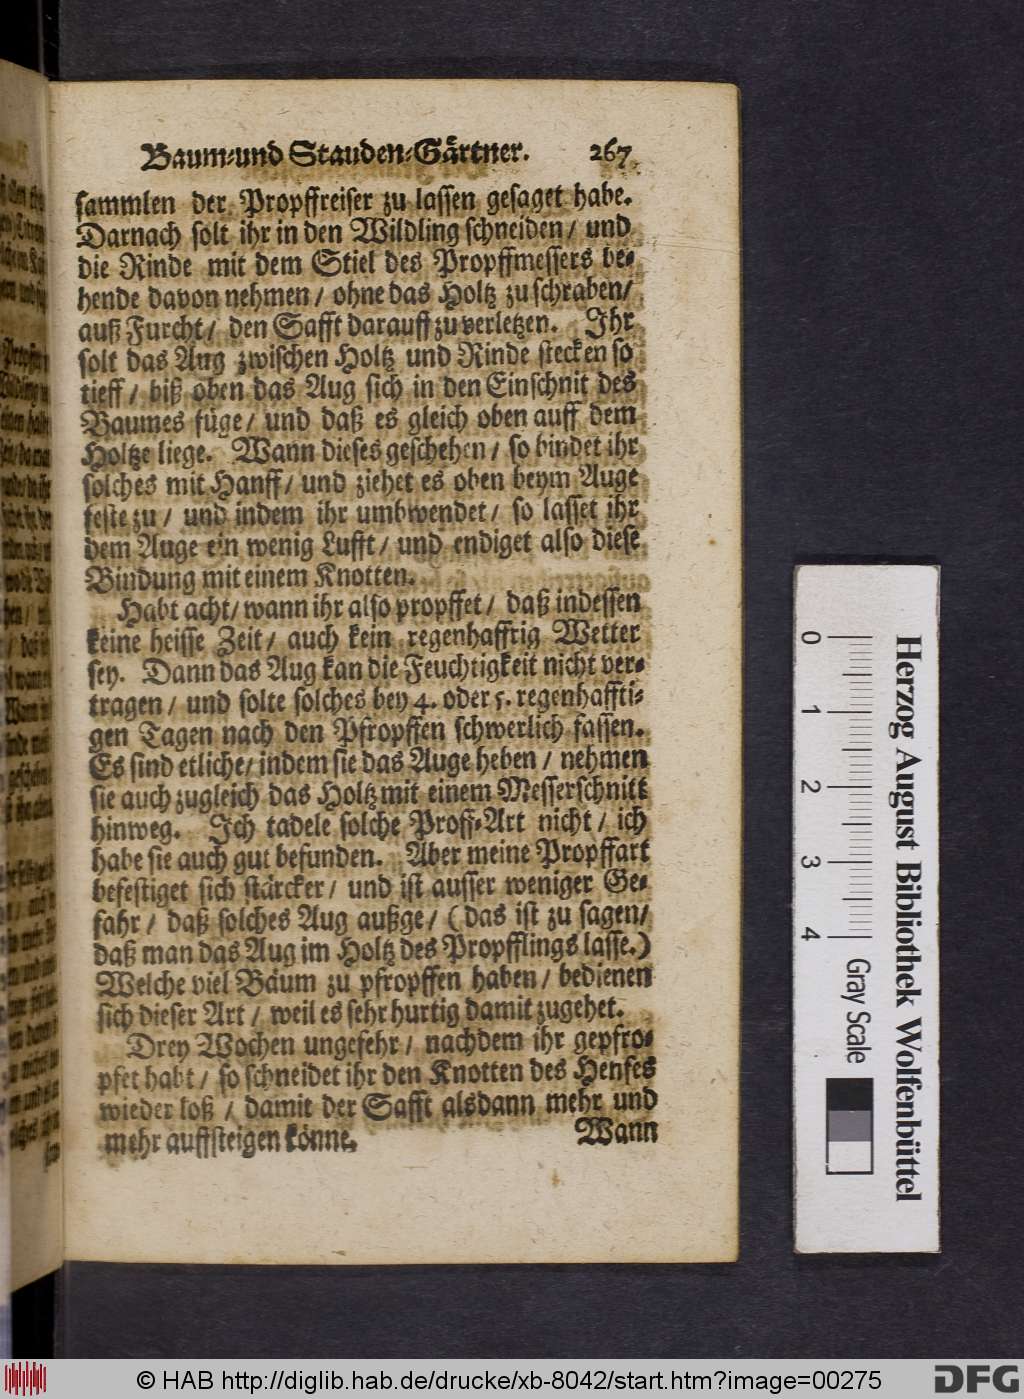 Baum-und Stauden-Gärtner. 267
sammlen der Propffreiser zu lassen gesaget habe.
Darnach solt ihr in den Wildling schneiden / und
die Rinde mit dem Stiel des Propffmessers be-
hende davon nehmen / ohne das Holtz zu schraben /
auß Furcht / den Safft darauff zu verletzen. Ihr
solt das Aug zwischen Holtz und Rinde stecken so
tieff / biß oben das Aug sich in den Einschnit des
Baumes füge / und daß es gleich oben auff dem
Holtze liege. Wann dieses geschehen / so bindet ihr
solches mit Hanff / und ziehet es oben beym Auge
feste zu / und indem ihr umbwendet / so lasset ihr
dem Auge ein wenig Lufft / und endiget also diese
Bindung mit einem Knotten.
Habt acht / wann ihr also propffet / daß indessen
keine heisse Zeit / auch kein regenhafftig Wetter
sey. Dann das Aug kan die Feuchtigkeit nicht ver-
tragen / und solte solches bey 4. oder 5. regenhaffti-
gen Tagen nach den Pfropffen schwerlich fassen.
Es sind etliche / indem sie das Auge heben / nehmen
sie auch zugleich das Holtz mit einem Messerschnitt
hinweg. Ich tadele solche Proff-Art nicht / ich
habe sie auch gut befunden. Aber meine Propffart
befestiget sich stärcker / und ist ausser weniger Ge-
fahr / daß solches Aug außge / (das ist zu sagen /
daß man das Aug im Holtz des Propfflings lasse.)
Welche viel Bäum zu pfropffen haben / bedienen
sich dieser Art / weil es sehr hurtig damit zugehet.
Drey Wochen ungefehr / nachdem ihr gepfro-
pfet habt / so schneidet ihr den Knotten des Henfes
wieder loß / damit der Safft alsdann mehr und
mehr auffsteigen könne.
Wann
0 1 2 3 4
Gray Scale
Herzog August Bibliothek Wolfenbüttel
© HAB http://diglib.hab.de/drucke/xb-8042/start.htm?image=00275
DFG